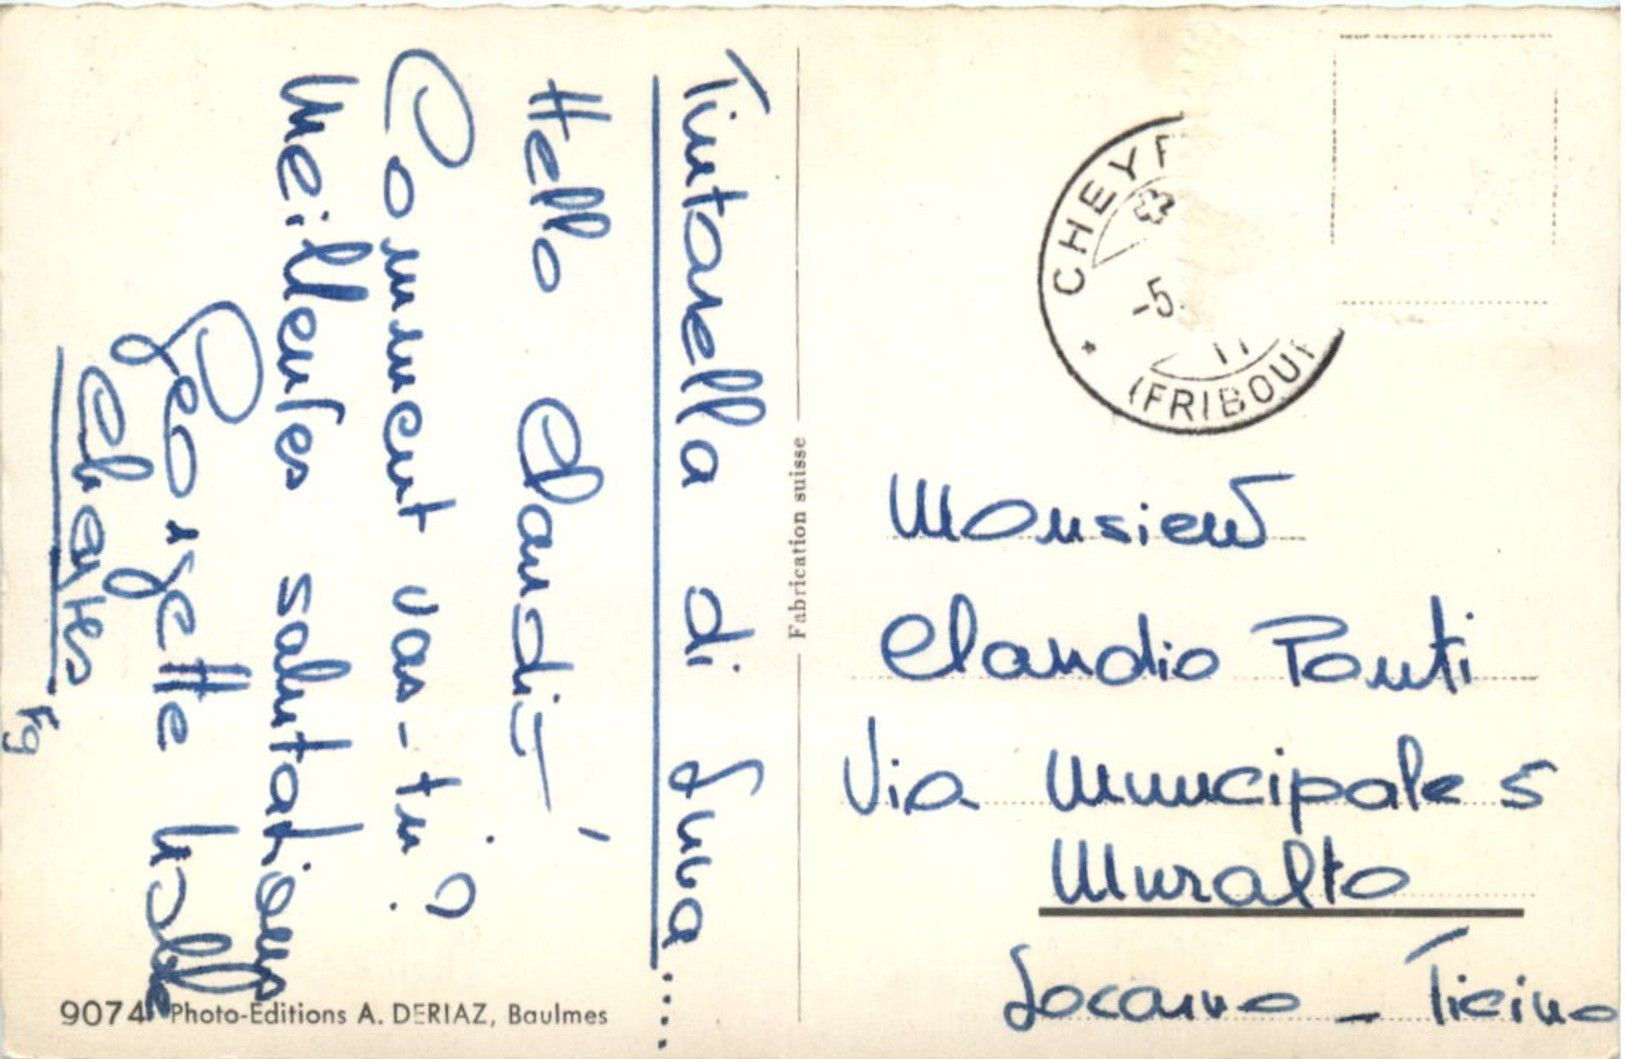 Tintarella di Luna....
Hello Claudio!
Comment vas-tu?
Meilleures salutations
Georgette
Cheyres
Fg
9074 Photo-Editions A. DERIAZ, Baulmes
Fabrication suisse
CHEYR
-5.
(FRIBOU
Monsieur
Claudio Ponti
Via Municipale 5
Muralto
Locarno - Ticino